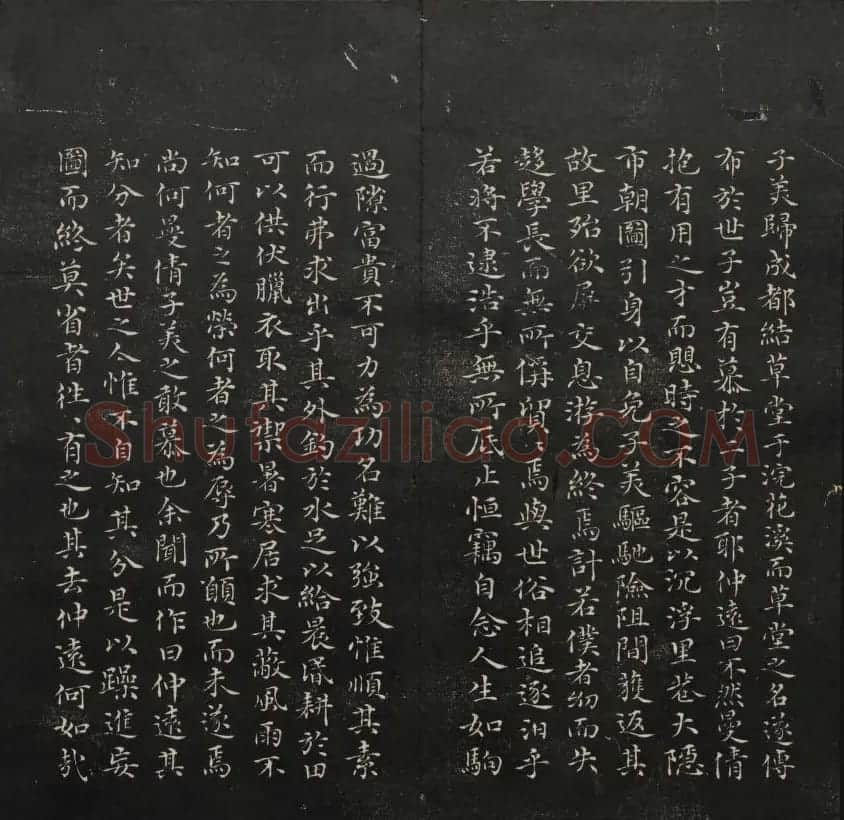 子美歸成都結草堂于浣花溪而草堂之名遂傳
布於世子豈有慕於二子者耶仲遠曰不然曼倩
抱有用之才而思時之不容是以沉浮里巷大隱
市朝圖引身以自免子美驅馳險阻間獲返其
故里殆欲屏交息游為終焉計若僕者幼而失
趍學長而無所儔留焉與世俗相追逐汨乎
若將不逮浩乎無所底止恒竊自念人生如駒
過隙富貴不可力為功名難以強致惟順其素
而行弗求出乎其外釣於水足以給晨昏耕於田
可以供伏臘衣取其禦暑寒居求其蔽風雨不
知何者之為榮何者之為辱乃所願也而未遂焉
尚何曼倩子美之敢慕也余聞而作曰仲遠其
知分者矣世之人惟不自知其分是以躁進妄
圖而終莫省者往、有之也其去仲遠何如哉
Shufaziliao.COM